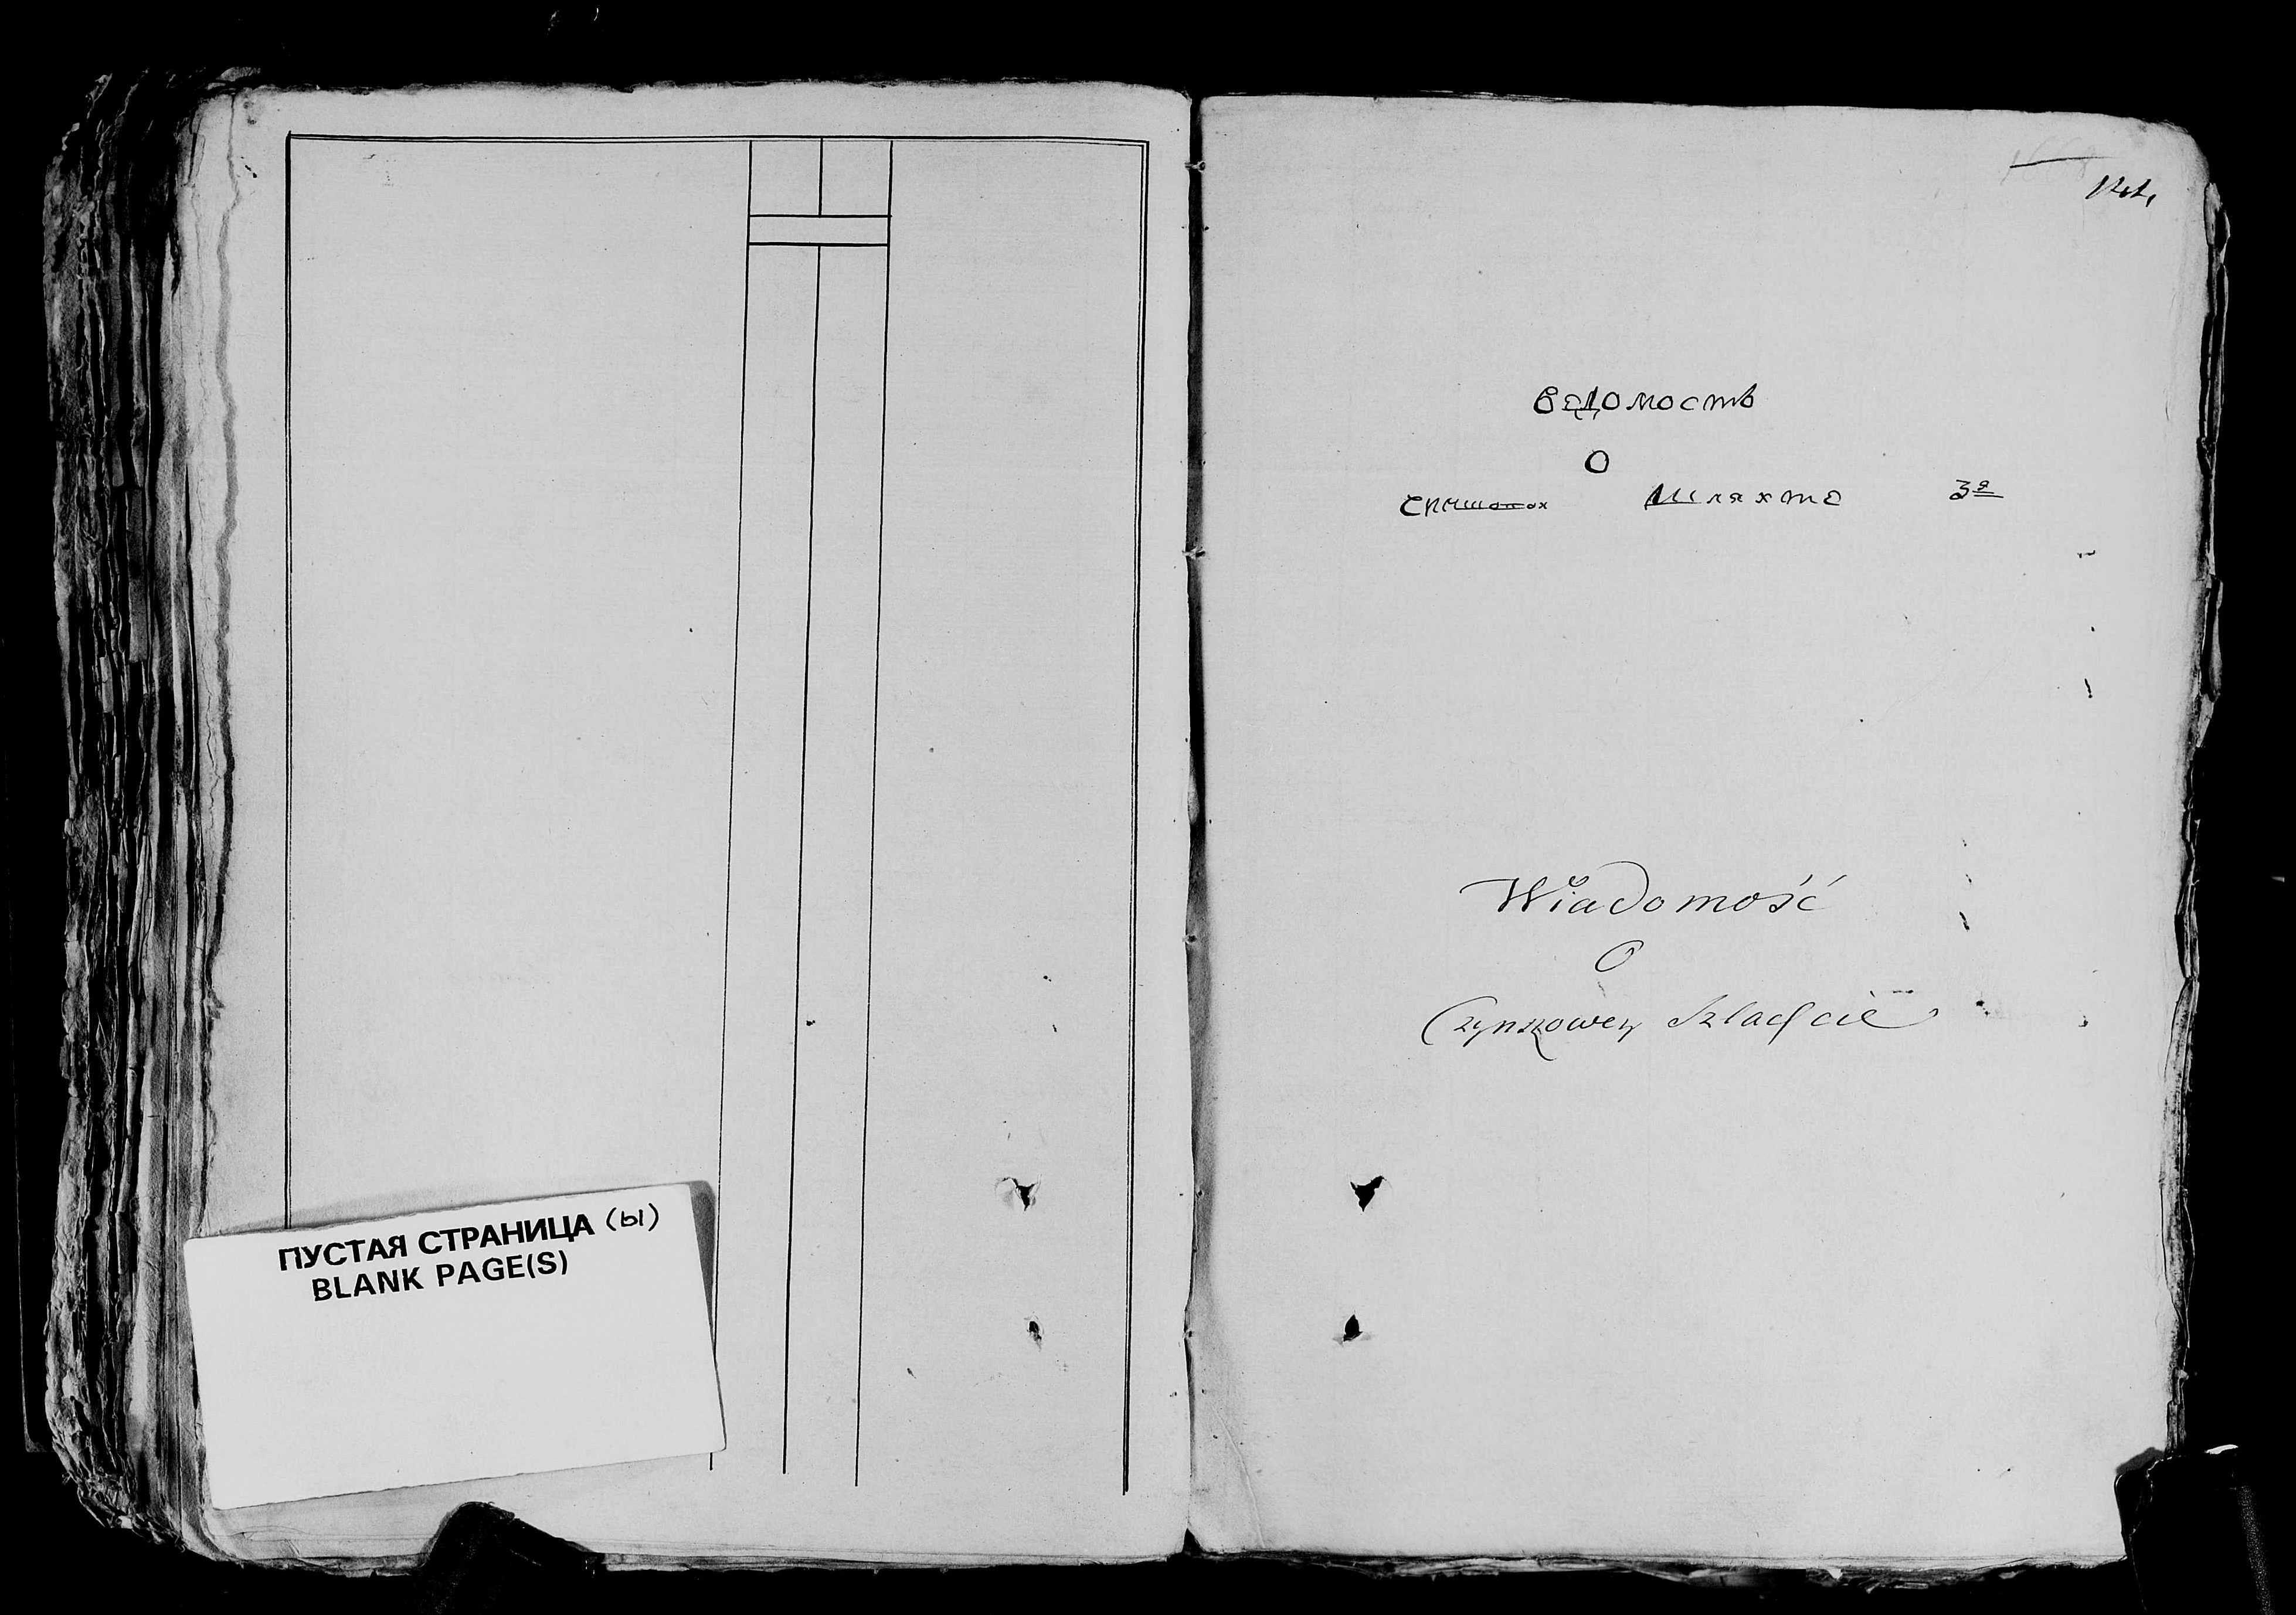 ПУСТАЯ СТРАНИЦА (Ы)
BLANK PAGE(S)
Ведомость
О
Шляхте 3я
Wiadomość
O
Czynszowey Szlachcie